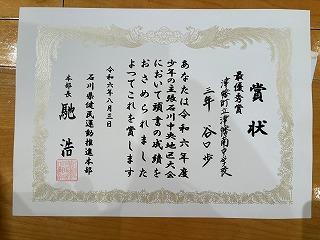 賞状
最優秀賞
津幡町立津幡南中学校
三年 谷口歩
あなたは令和六年度
少年の主張石川中央地区大会
において頭書の成績を
おさめられました
よつてこれを賞します
令和六年八月三日
石川県健民運動推進本部
本部長 馳浩